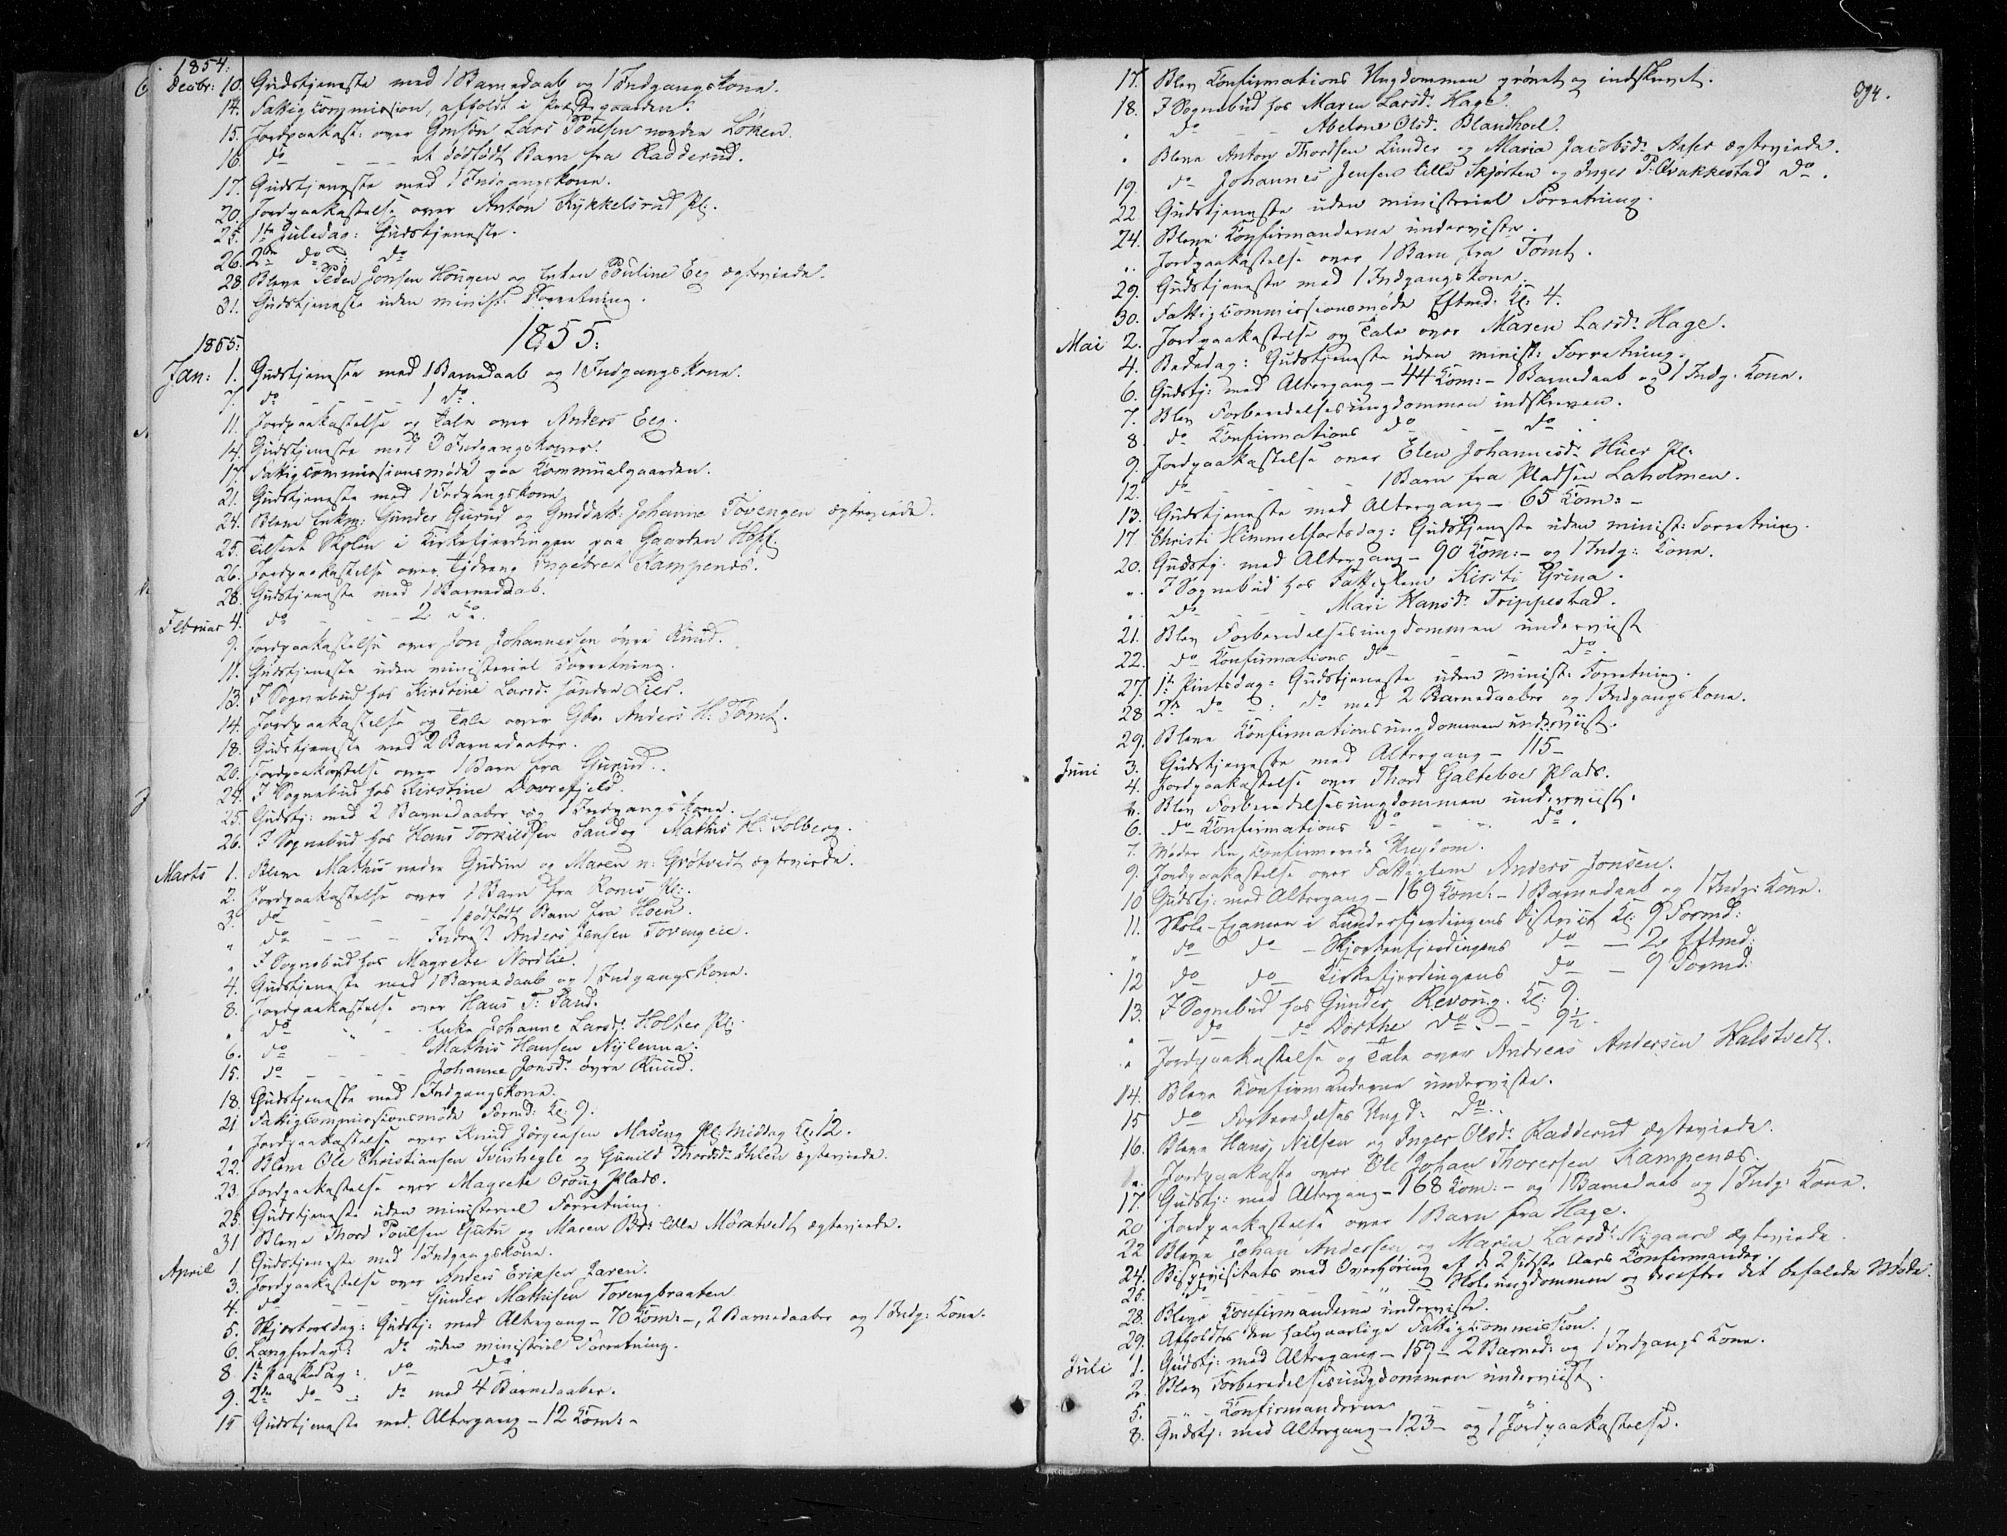 1854:
Decbr: 10. Gudstjeneste med 1 Barnedaab og 1 Indgangskone.
14. Fattigcommission, afholdt i Præstegaarden.
15. Jordpaakast: over Gmson Lars Poulsen nordre Løken.
16. do - - - et dødfødt Barn fra Radderud.
17. Gudstjeneste med 1 Indgangskone.
20. Jordpaakastelse over Anton Kykkelsrud Pl.
25. 1ste Juledag: Gudstjeneste.
26. 2den do : do
28. Bleve Peder Jonsen Hougen og Enken Pouline Eeg ægteviede.
31. Gudstjeneste uden minist: Forretning.
1855:
1855:
Jan: 1. Gudstjeneste med 1 Barnedaab og 1 Indgangskone.
7. do - - - 1 do.
11. Jordpaakastelse og Tale over Anders Eeg.
14. Gudstjeneste med 3 Indgangskoner.
17. Fattigcommissionsmøde paa Kommunalgaarden.
21. Gudstjeneste med 1 Indgangskone
24. Bleve Enkm: Gunder Gurud og Gmddatt: Johanne Tovengen ægteviede.
25. Tilseet Skolen i Kirkefjerdingen paa Gaarden Hoff.
26. Jordpaakastelse over Ingebret Kampenæs.
28. Gudstjeneste med 1 Barnedaab.
Februar 4. do - - - 2 do.
9. Jordpaakastelse over Jon Johannessen øvre Ruud.
11. Gudstjeneste uden ministeriel Forretning.
13. I Sognebud hos Kirstine Larsdr. søndre Lier.
14. Jordpaakastelse og Tale over Gbr. Anders H. Tømt.
18. Gudstjeneste med 2 Barnedaaber.
20. Jordpaakastelse over 1 Barn fra Gurud.
24. I Sognebud hos Kirstine Dovrefjeld.
25. Gudstj: med 2 Barnedaaber og 1 Indgangskone.
26. I Sognebud hos Hans Torkildsen Sand og Mathis H. Solberg.
Marts 1. Bleve Mathis nedre Gudim og Maren n: Grøtvedt ægteviede.
2. Jordpaakastelse over 1 Barn fra Romis Pl.
3. do - - - 1 dødfødt Barn fra Hoen.
" do - - - Anders Jensen Tovengen.
" I Sognebud hos Magrete Nordlie.
4. Gudstjeneste med 1 Barnedaab og 1 Indgangskone.
8. Jordpaakastelse over Hans T. Sand.
" do " - Enke Johanne Larsdr. Holter Pl.
6. do - - - Mathis Hansen Nylenna:
15. do - - - Johanne Jonsdr. øvre Ruud.
18. Gudstjeneste med 1 Indgangskone.
21 Fattigcommissionsmøde Formd: Kl: 9.
" Jordpaakastelse over Knud Jørgensen Maseng Pl. Middag Kl: 12.
22. Bleve Ole Christiansen og Gunild Thordsdr. ægteviede.
23. Jordpaakastelse over Magrete Oroug Plads.
25. Gudstjeneste uden ministeriel Forretning.
31 Bleve Thord Poulsen Gutu og Maren lille Mørstvedt ægteviede.
April 1. Gudstjeneste med 1 Indgangskone.
3. Jordpaakastelse over Anders Eriksen Jaren.
4. do - - - Gunder Mathisen Tovengbraaten
5. Skjærtorsdag: Gudstj: med Altergang - 70 Kom: -, 2 Barnedaaber og 1 Indg: Kone.
6. Langfredag: do uden ministriel Forretning.
8 1ste Paaskedag: do do
9. 2den do : do med 4 Barnedaaber.
15 Gudstjeneste med Altergang - 12 Kom: -
394.
17. Blev Konfirmations Ungdommen prøvet og indskrevet.
18. I Sognebud hos Maren Larsdr. Hage.
" do - - Abelone Olsdr. Blandhoel.
" Bleve Anton Thordsen Lunder og Maria Jacobsdr. Aaser ægteviede.
19. do Johannes Jensen lille Skjørten og Inger P. Krakkestad do.
22 Gudstjeneste uden ministeriel Forretning.
24. Bleve Konfirmanderne underviste.
" Jordpaakastelse over 1 Barn fra Tømt.
29. Gudstjeneste med 1 Indgangskone.
30. Fattigcommissionsmøde Eftmd: Kl: 4.
Mai 2. Jordpaakastelse og Tale over Maren Larsdr. Hage.
4. Bededag: Gudstjeneste uden minist: Forretning.
6. Gudstj: med Altergang - 44 Kom: - 1 Barnedaab og 1 Indg. Kone.
7. Blev Forberedelsesungdommen indskreven.
8. do Konfirmations do - - do .
9. Jordpaakastelse over Elen Johannesdr. Huer Pl.
12. do - - - 1 Barn fra Pladsen Laholmen.
13. Gudstjeneste med Altergang - 65 Kom: -
17. Christi Himmelfartsdag: Gudstjeneste uden minist: Forretning.
20. Gudstj: med Altergang - 90 Kom: - og 1 Indg: Kone.
" I Sognebud hos Fattiglem Kirsti Grina.
" do - - Mari Hansdr. Trippestad.
21. Blev Forberedelsesungdommen underviist
22. do Konfirmations do - - do.
27. 1ste Pintsdag: Gudstjeneste uden minist: Forretning.
28 2den do : do med 2 Barnedaaber og 1 Indgangskone.
29. Bleve Konfirmationsungdommen underviist.
Juni 3. Gudstjeneste med Altergang - 115 -
4. Jordpaakastelse over Thord Galteboe Plads.
" Blev Forberedelsesungdommen underviist.
6. do Konfirmations do - " do.
7. Møder den konfirmerede Ungdom.
9. Jordpaakastelse over Fattiglem Anders Jonsen.
10 Gudstj: med Altergang - 169 Kom: - 1 Barnedaab og 1 Indg: Kone.
11. Skole-Examen i Lunderfjerdingens District Kl: 9 Formd:
" do do - Skjørtenfjerdingens do - 2 Eftmd:
12 do do Kirkefjerdingens do - 9 Formd:
13. I Sognebud hos Gunder Revoug. Kl: 9.
" do do Dorthe do. - - 9½.
" Jordpaakastelse og Tale over Andreas Andersen Halstvedt.
14. Bleve Konfirmanderne underviste.
15 do Forberedelses Ungd: do.
16. Bleve Hans Nilsen og Inger Olsdr. Radderud ægteviede.
" Jordpaakaste over Ole Johan Thoresen Kampenæs.
17. Gudstj: med Altergang - 168 Kom: - og 1 Barnedaab og 1 Indg: Kone.
20 Jordpaakastelse over 1 Barn fra Hage.
22 Bleve Johan Andersen og Maria Larsdr. Nygaard ægteviede.
24. Bispevisitats med Overhøring af de 2 sidste Aars Konfirmander.
25. " do " " Skoleungdommen og derefter det befalede Møde.
28. Bleve Konfirmanderne underviste.
29. Afholdtes den halvaarlige Fattigcommission.
Juli 1. Gudstj: med Altergang - 159 - 2 Barned: og 1 Indgangs Kone.
2. Blev Forberedelsesungdommen underviist.
5. " - Konfirmanderne "
8. Gudstj: med Altergang - 123 - og 1 Jordpaakastelse.